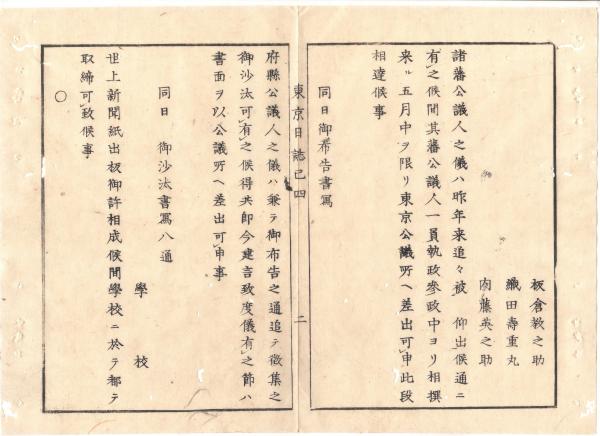 板倉教之助
織田壽重丸
内藤英之助
諸藩公議人之儀ハ昨年来追々被　仰出候通ニ
有之候間其藩公議人一員執政參政中ヨリ相撰
来ル五月中ヲ限リ東京公議所ヘ差出可申此段
相達候事
同日御布告書寫
東京日誌己四
二
府縣公議人之儀ハ兼テ御布告之通追テ徴集之
御沙汰可有之候得共即今建言致度儀有之節ハ
書面ヲ以公議所ヘ差出可申事
同日　御沙汰書寫八通
學校
世上新聞紙出板御許相成候間學校ニ於テ都テ
取締可致候事
〇